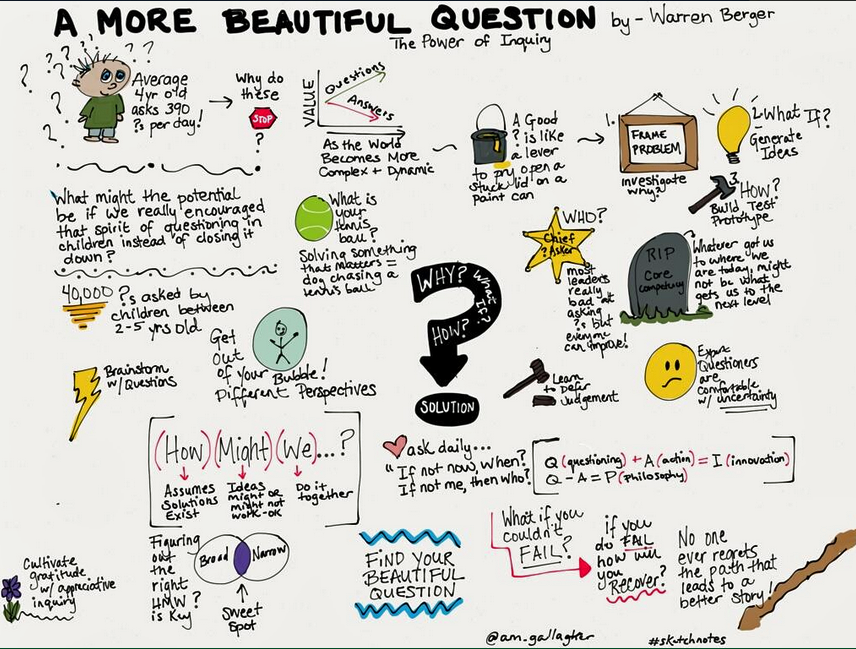 A MORE BEAUTIFUL QUESTION by - Warren Berger
The Power of Inquiry
? ? ? ? ? ? ?
Average
4yr old
asks 390
?s per day!
Why do
these
STOP
?
VALUE
Questions
Answers
As the World
Becomes More
Complex + Dynamic
A Good
? is like
a lever
to pry open a
stuck lid on a
paint can
1.
FRAME
PROBLEM
investigate
why?
2. What If?
Generate
Ideas
3.
How?
Build Test
Prototype
What might the potential
be if we really encouraged
that spirit of questioning in
children instead of closing it
down?
What is
your
tennis
ball?
Solving something
that matters =
dog chasing a
tennis ball
WHO?
Chief
? Asker
most
leaders
really
bad at
asking
?s but
everyone
can improve!
RIP
Core
Competency
Whatever got us
to where we
are today, might
not be what
gets us to the
next level
40,000 ?s asked by
children between
2-5 yrs old
Get
out
of your Bubble!
Different Perspectives
WHY?
What If?
HOW?
SOLUTION
Brainstorm
w/ Questions
Learn
to Defer
Judgement
Expert
Questioners
are
comfortable
w/ uncertainty
(How) (Might) (We)...?
Assumes
Solutions
Exist
Ideas
might or
might not
work-ok
Do it
together
ask daily...
"If not now, when?
If not me, then who?
Q (questioning) + A (action) = I (innovation)
Q - A = P (philosophy)
Cultivate
gratitude
w/ appreciative
inquiry
Figuring
out
the
right
HMW?
is Key
Broad
Narrow
Sweet
Spot
FIND YOUR
BEAUTIFUL
QUESTION
What if you
couldn't
FAIL?
if you
do FAIL
how will
you
Recover?
No one
ever regrets
the path that
leads to a
better story!
@am_gallagher
#sketchnotes